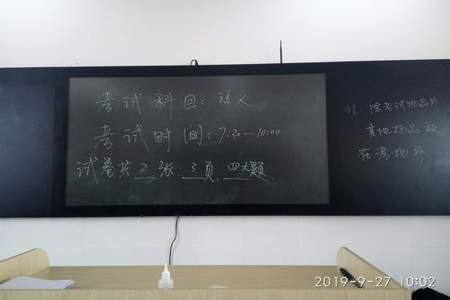 考试科目：语文
考试时间：7:30—10:00
试卷共 2 张 3 页，四大题
除考试物品外
其他物品放
在考场外
2019-9-27 10:02